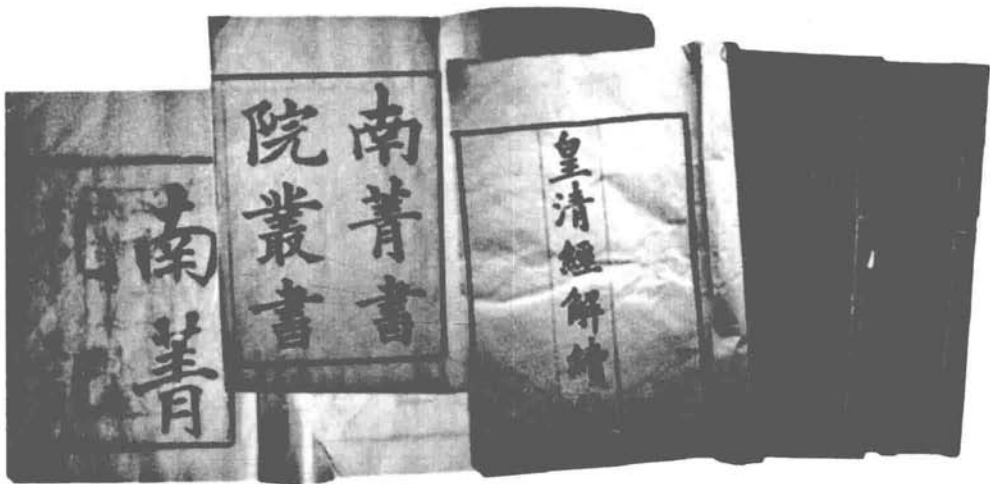 南菁
南菁書
院叢書
皇清經解續